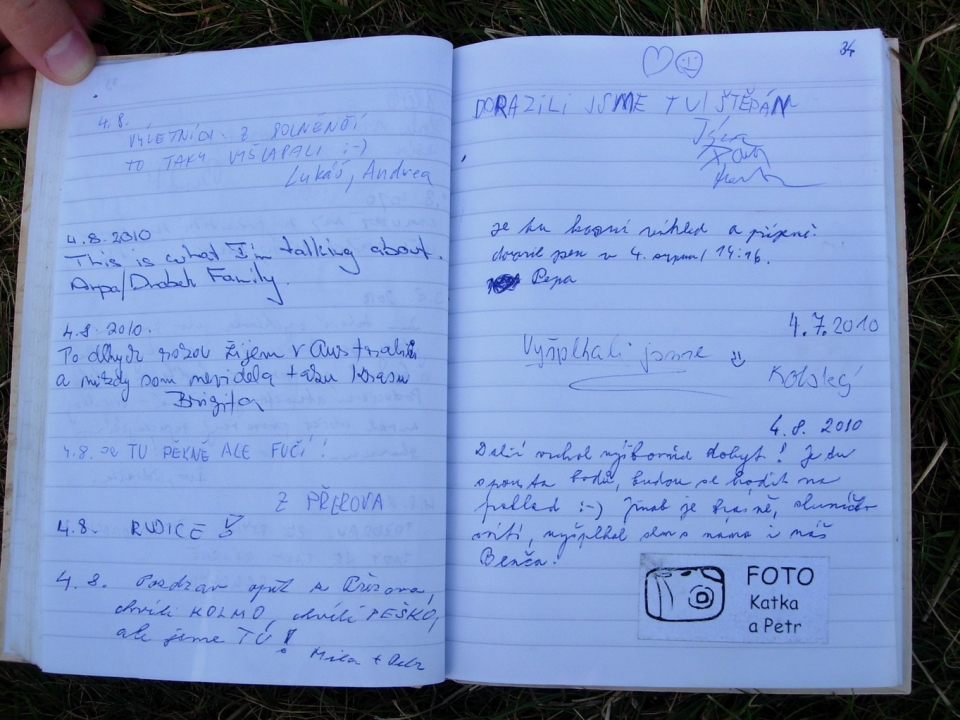 4.8.
VÝLETNÍCI Z
TO TAKY VIŠLAPALI :-)
Lukáš, Andrea
4.8.2010
This is what I'm talking about.
Arpa/Drobek Family.
4.8.2010.
Po dlhych rokov žijem v Australii
a nikdy som nevidela takú krasu
Brigita
4.8. JE TU PĚKNĚ ALE FUČÍ!
Z PŘEROVA
4.8. RUDICE 5
4.8. Pozdrav opět z Přerova,
chvíli KOLMO, chvíli PEŠKO,
ale jsme TU!
Mila + Petr
34
DORAZILI JSME TU! ŠTĚPÁN
Jára
Petr
Je tu krásný výhled a
4. srpna 14:16.
Pepa
4.7.2010
Vyšplhali jsme
4.8.2010
Další vrchol výborně dobyt! Je tu
spousta bodů, budou se hodit na
:-) Jinak je krásně, sluníčko
svítí, vyšplhal sem s náma i náš
Benča!
FOTO
Katka
a Petr